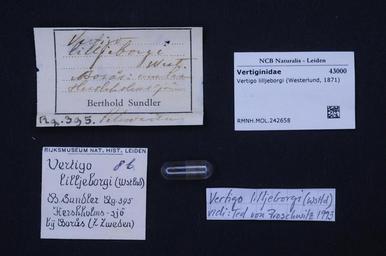 Vertigo
lilljeborgi
West.
Borås:
Berthold Sundler
Rg. 395.
NCB Naturalis - Leiden
Vertiginidae 43000
Vertigo lilljeborgi (Westerlund, 1871)
RMNH.MOL.242658
RIJKSMUSEUM NAT. HIST. LEIDEN
Vertigo 8b
lilljeborgi (Wstld)
B. Sundler Rg. 395
Hershholms-sjö
bij Borås (Z. Zweden)
Vertigo lilljeborgi (Wstld)
vidi: Ted von Proschwitz 1993